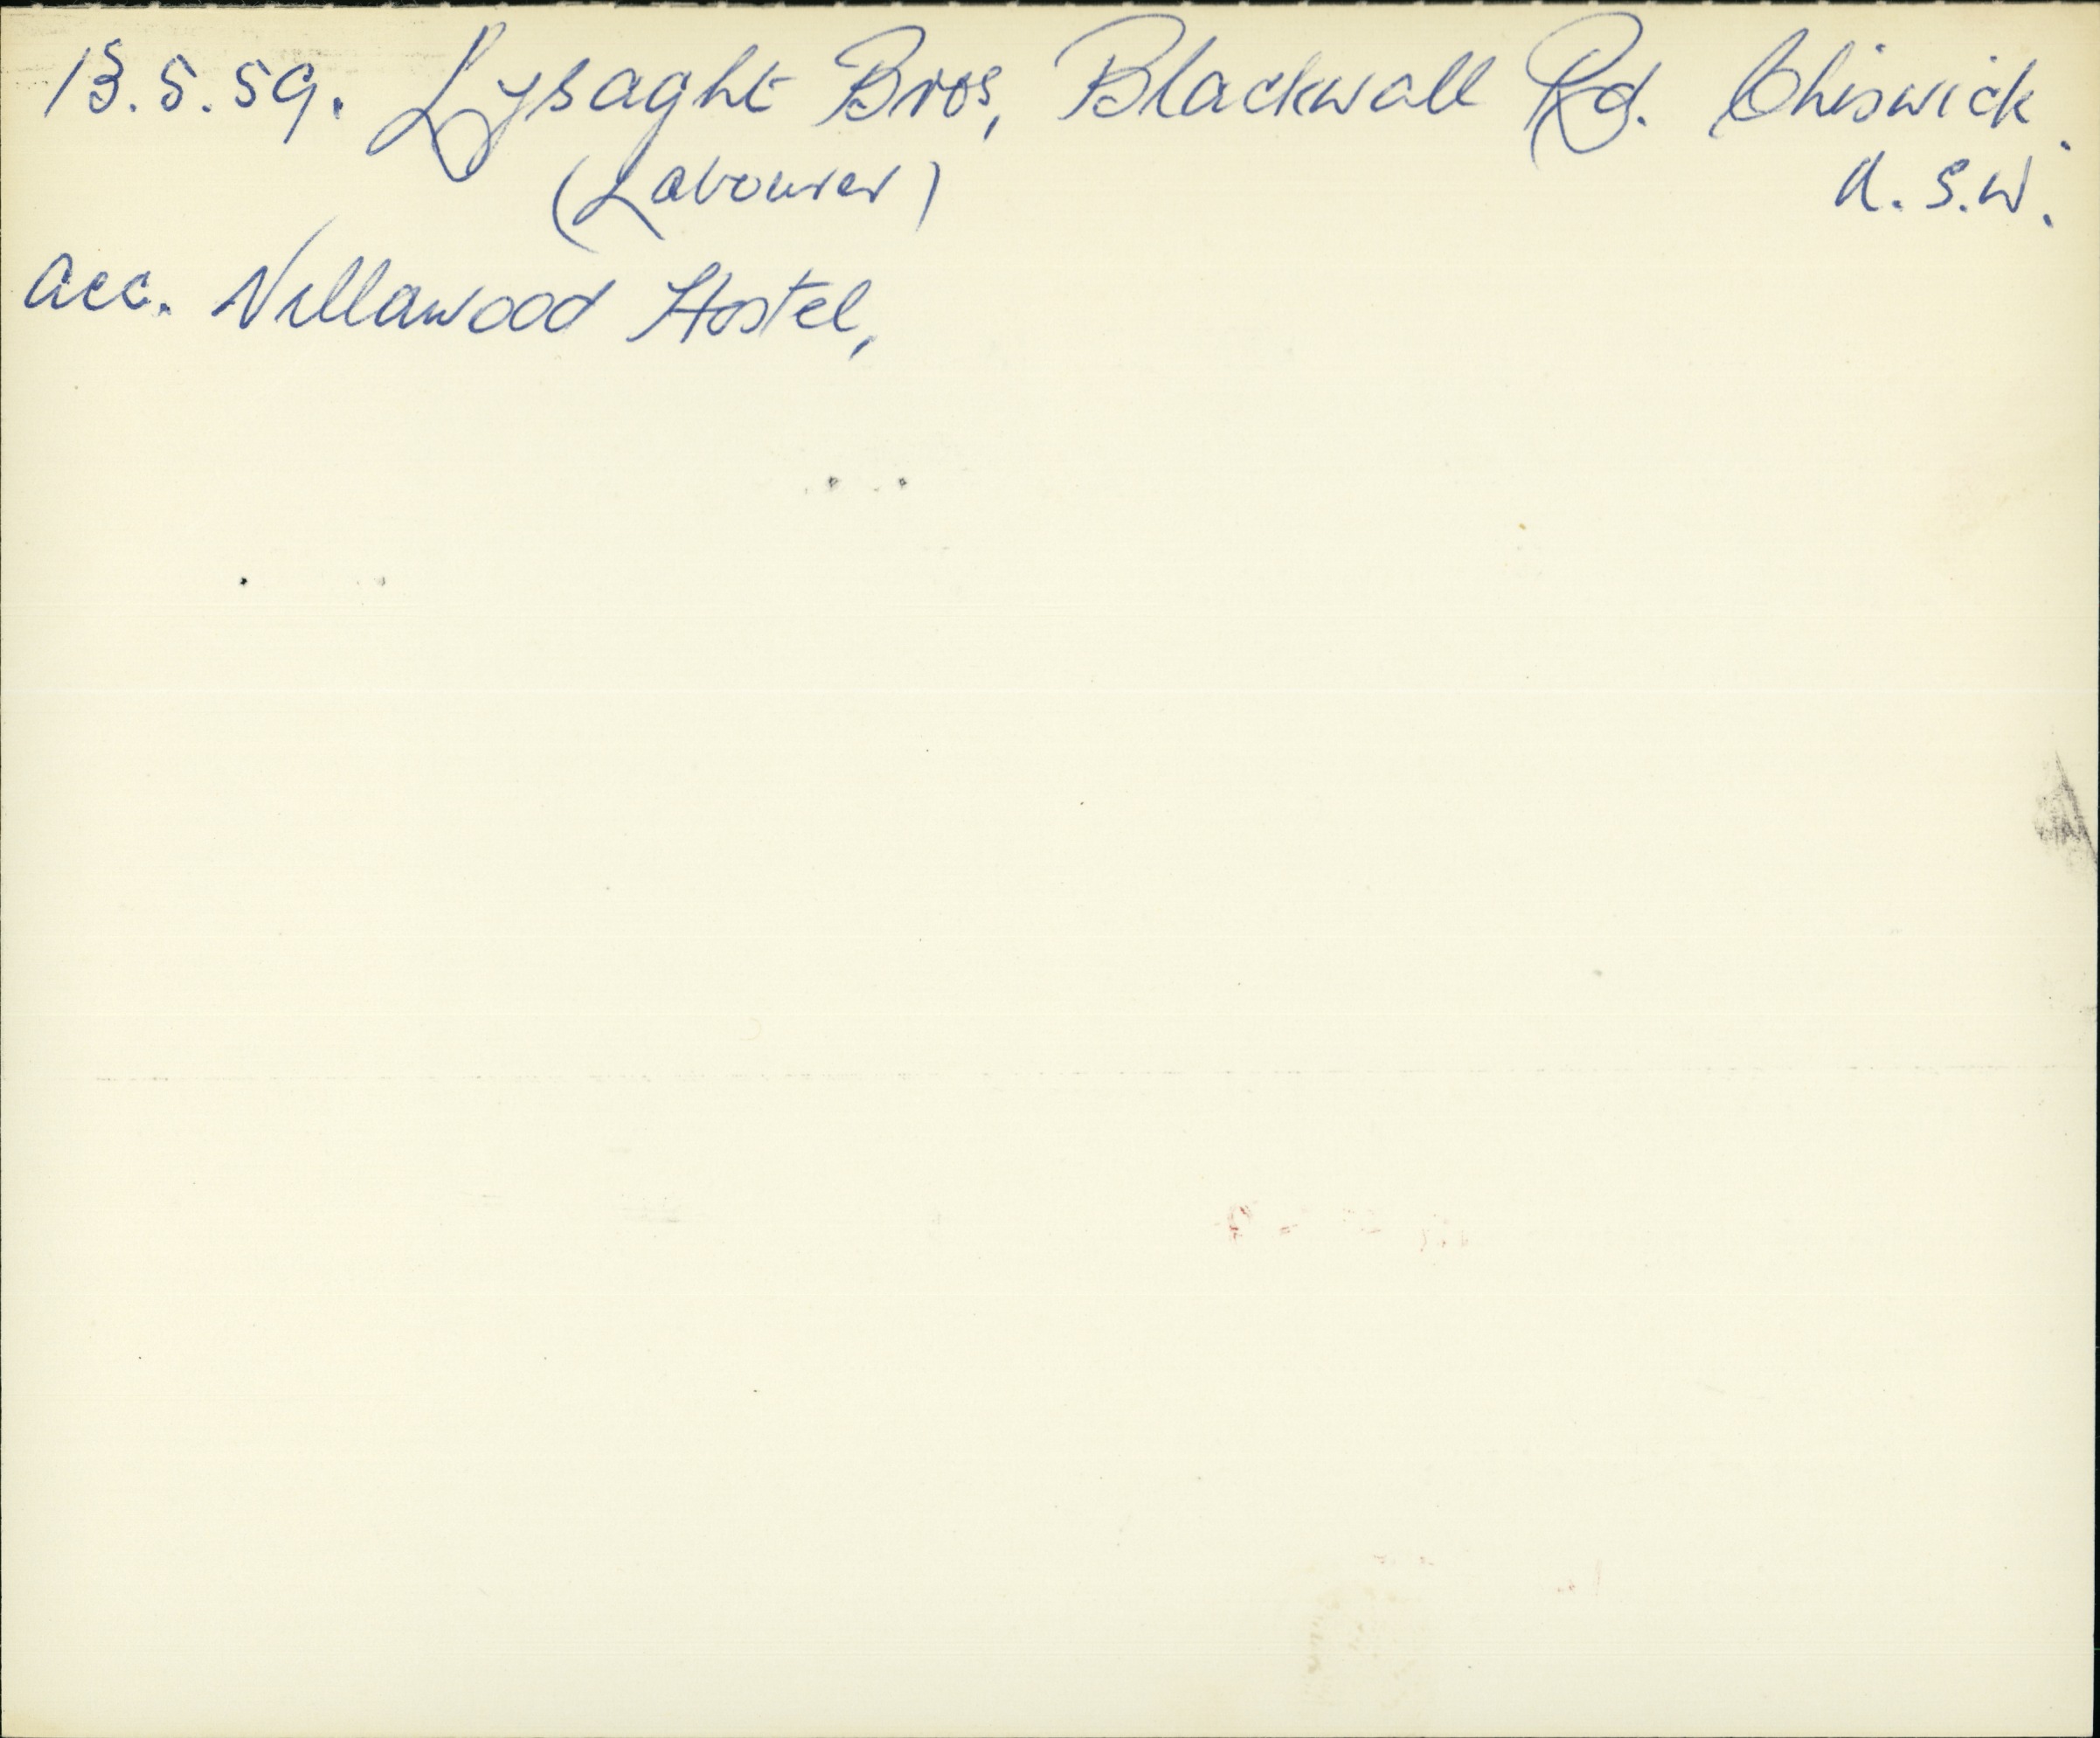 13.5.59. Lysaght Bros, Blackwall Rd. Chiswick.
(Labourer) N.S.W.
acc. Villawood Hostel,